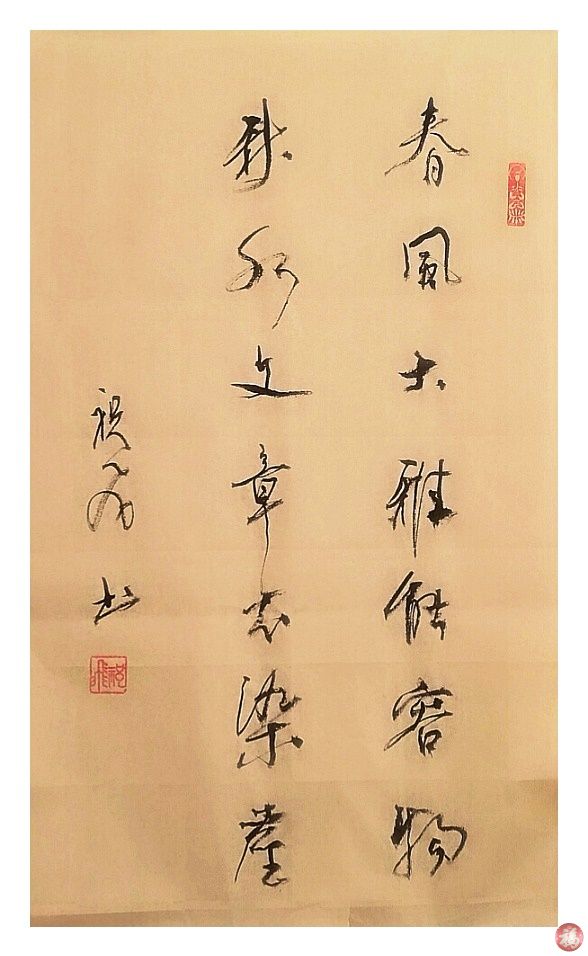 春風大雅能容物
秋水文章不染塵
祝 書
福